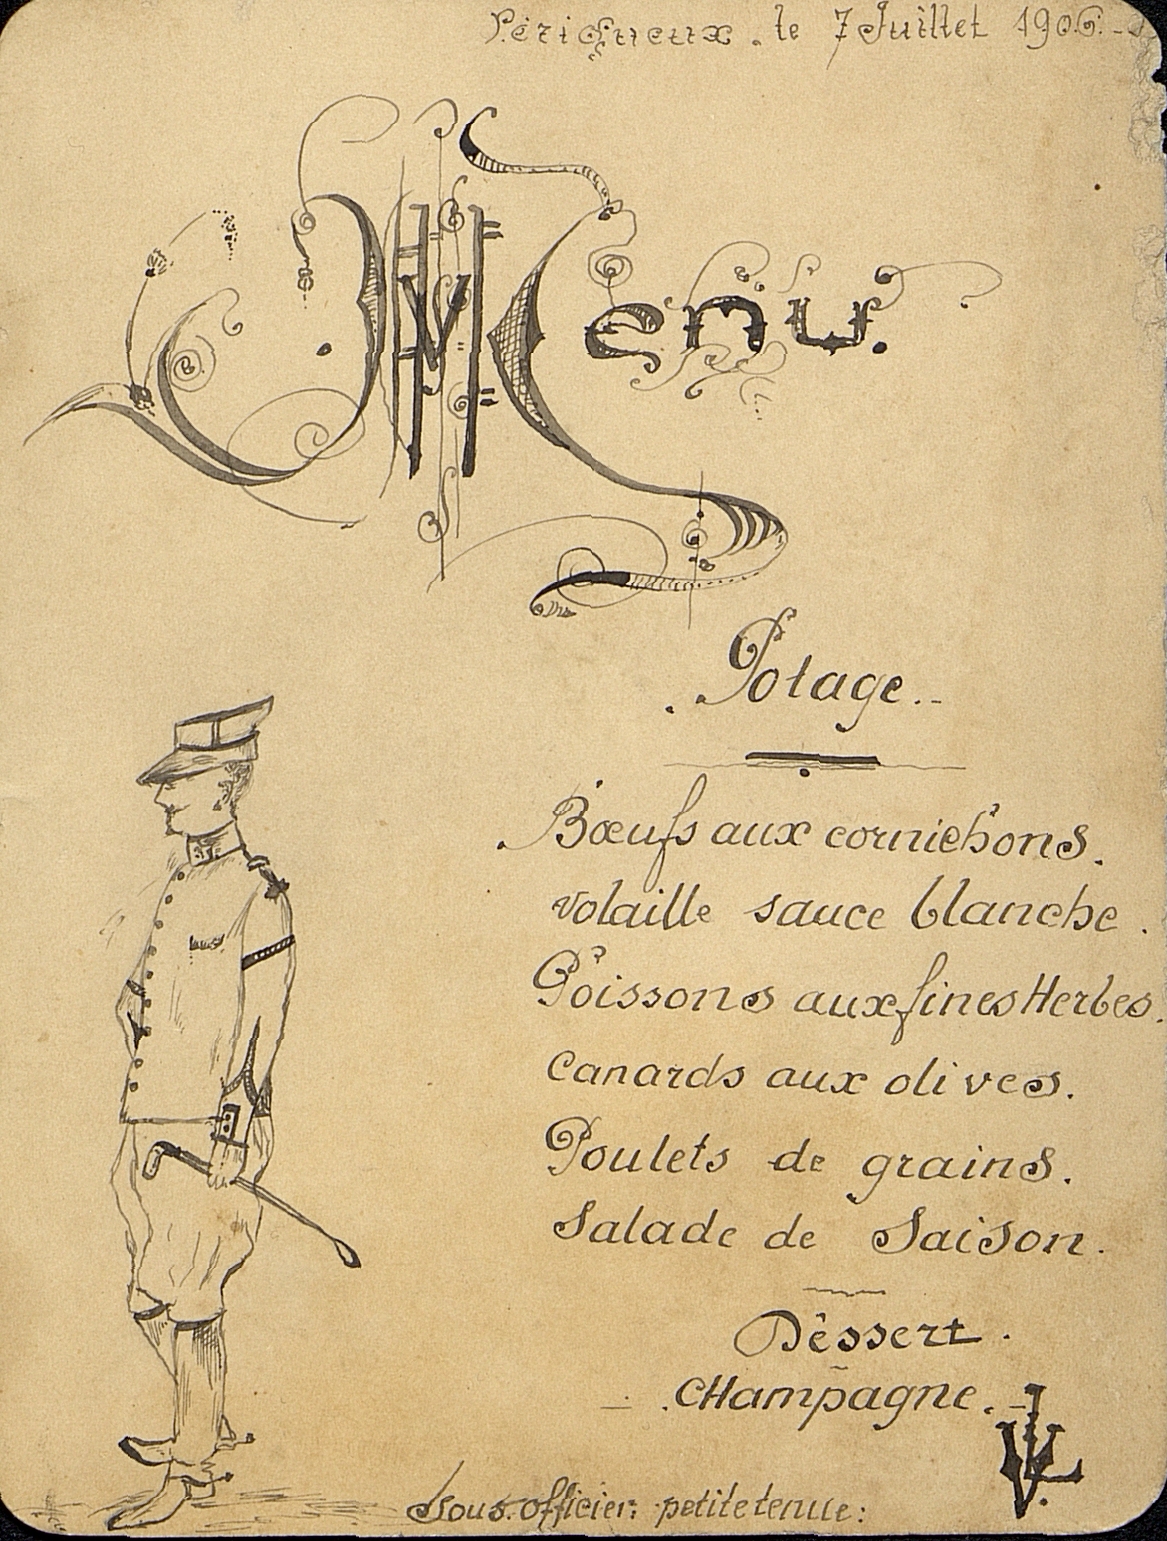 Périgueux . le 7 Juillet 1906.-
Menu.
. Potage..
. Bœufs aux cornichons.
volaille sauce blanche .
Poissons aux fines Herbes.
canards aux olives.
Poulets de grains.
Salade de Saison.
Déssert .
- . CHampagne. -
Sous. officier: petite tenue: